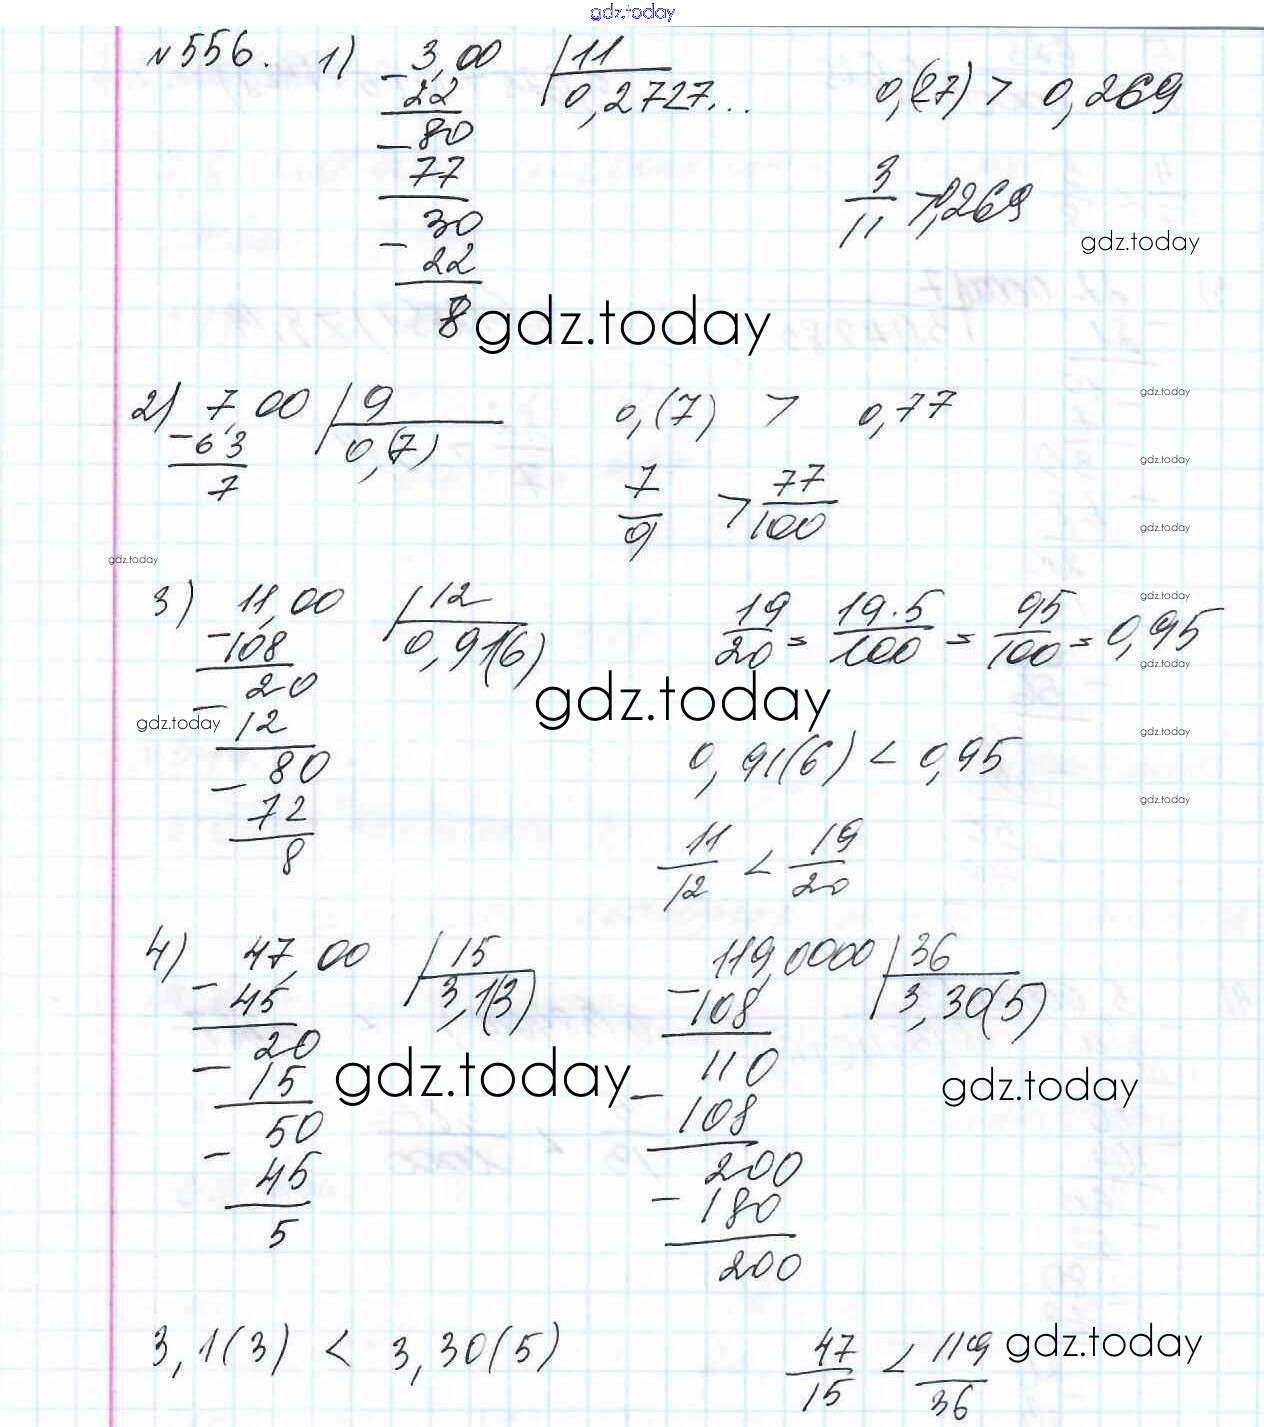 gdz.today
№556. 1) 3,00 | 11
- 22 0,2727...
- 80
77
- 30
22
8
0,(27) > 0,269
3/11 > 0,269
gdz.today
gdz.today
2) 7,00 | 9
- 63 0,(7)
7
0,(7) > 0,77
7/9 > 77/100
gdz.today
gdz.today
gdz.today
gdz.today
3) 11,00 | 12
- 108 0,91(6)
- 20
12
- 80
72
8
19/20 = 19·5/100 = 95/100 = 0,95
0,91(6) < 0,95
11/12 < 19/20
gdz.today
gdz.today
gdz.today
gdz.today
gdz.today
gdz.today
4) 47,00 | 15
- 45 3,1(3)
- 20
15
- 50
45
5
119,0000 | 36
- 108 3,30(5)
- 110
108
- 200
180
200
gdz.today
gdz.today
3,1(3) < 3,30(5)
47/15 < 119/36
gdz.today